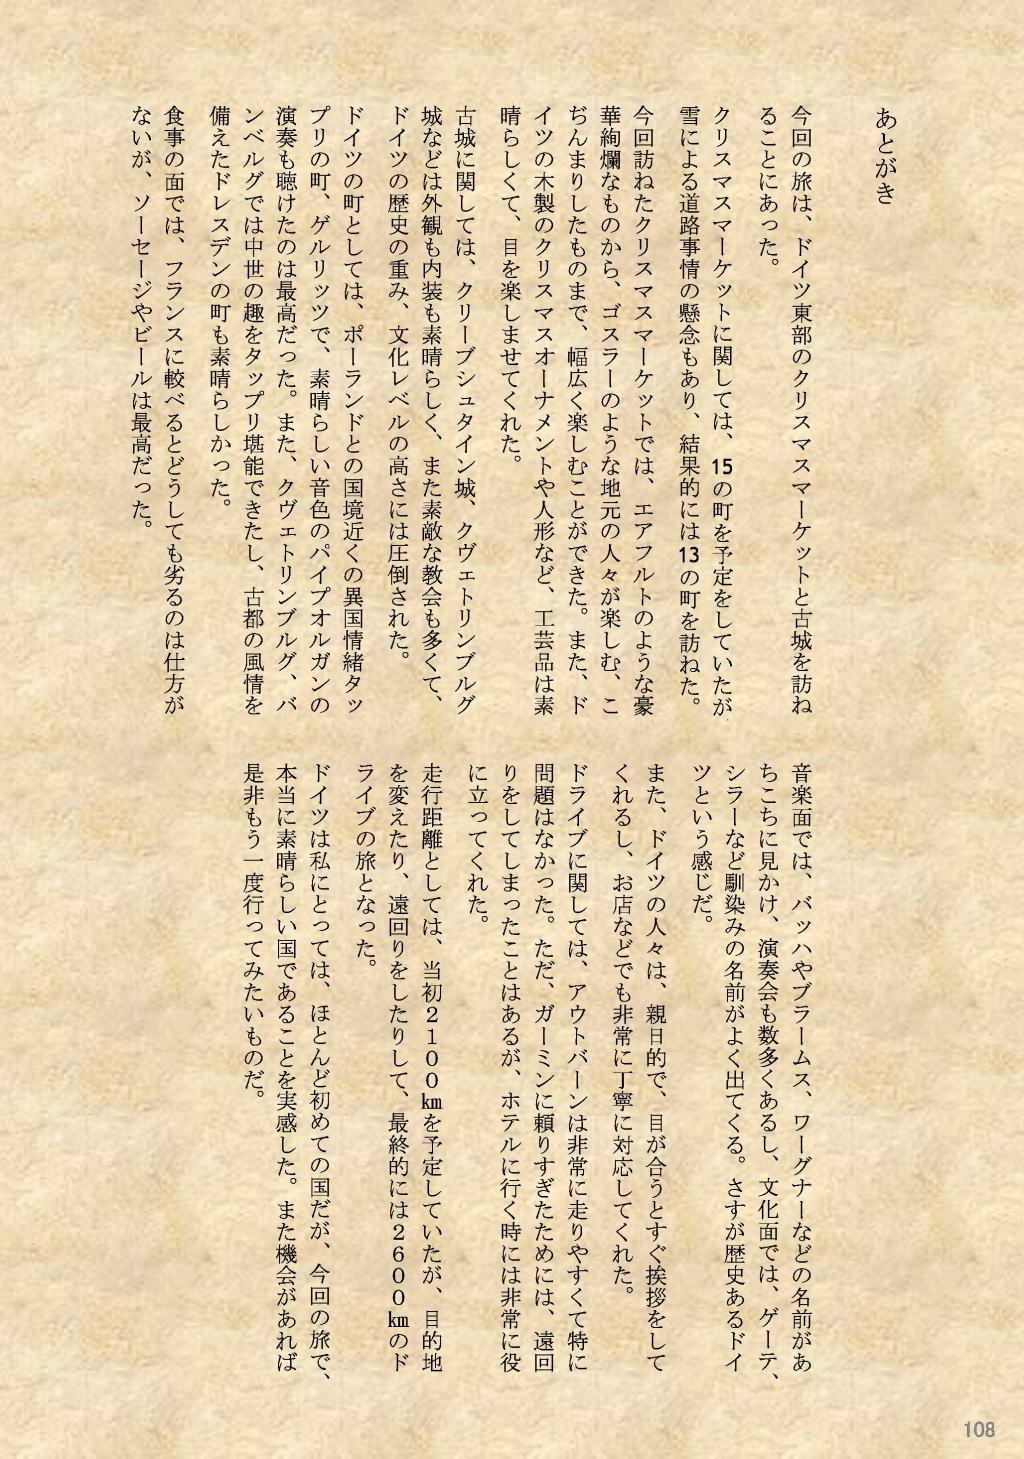 あとがき
今回の旅は、ドイツ東部のクリスマスマーケットと古城を訪ね
ることにあった。
クリスマスマーケットに関しては、15の町を予定をしていたが
雪による道路事情の懸念もあり、結果的には13の町を訪ねた。
今回訪ねたクリスマスマーケットでは、エアフルトのような豪
華絢爛なものから、ゴスラーのような地元の人々が楽しむ、こ
ぢんまりしたものまで、幅広く楽しむことができた。また、ド
イツの木製のクリスマスオーナメントや人形など、工芸品は素
晴らしくて、目を楽しませてくれた。
古城に関しては、クリーブシュタイン城、クヴェトリンブルグ
城などは外観も内装も素晴らしく、また素敵な教会も多くて、
ドイツの歴史の重み、文化レベルの高さには圧倒された。
ドイツの町としては、ポーランドとの国境近くの異国情緒タッ
プリの町、ゲルリッツで、素晴らしい音色のパイプオルガンの
演奏も聴けたのは最高だった。また、クヴェトリンブルグ、バ
ンベルグでは中世の趣をタップリ堪能できたし、古都の風情を
備えたドレスデンの町も素晴らしかった。
食事の面では、フランスに較べるとどうしても劣るのは仕方が
ないが、ソーセージやビールは最高だった。
音楽面では、バッハやブラームス、ワーグナーなどの名前があ
ちこちに見かけ、演奏会も数多くあるし、文化面では、ゲーテ、
シラーなど馴染みの名前がよく出てくる。さすが歴史あるドイ
ツという感じだ。
また、ドイツの人々は、親日的で、目が合うとすぐ挨拶をして
くれるし、お店などでも非常に丁寧に対応してくれた。
ドライブに関しては、アウトバーンは非常に走りやすくて特に
問題はなかった。ただ、ガーミンに頼りすぎたためには、遠回
りをしてしまったことはあるが、ホテルに行く時には非常に役
に立ってくれた。
走行距離としては、当初２１００㎞を予定していたが、目的地
を変えたり、遠回りをしたりして、最終的には２６００㎞のド
ライブの旅となった。
ドイツは私にとっては、ほとんど初めての国だが、今回の旅で、
本当に素晴らしい国であることを実感した。また機会があれば
是非もう一度行ってみたいものだ。
108